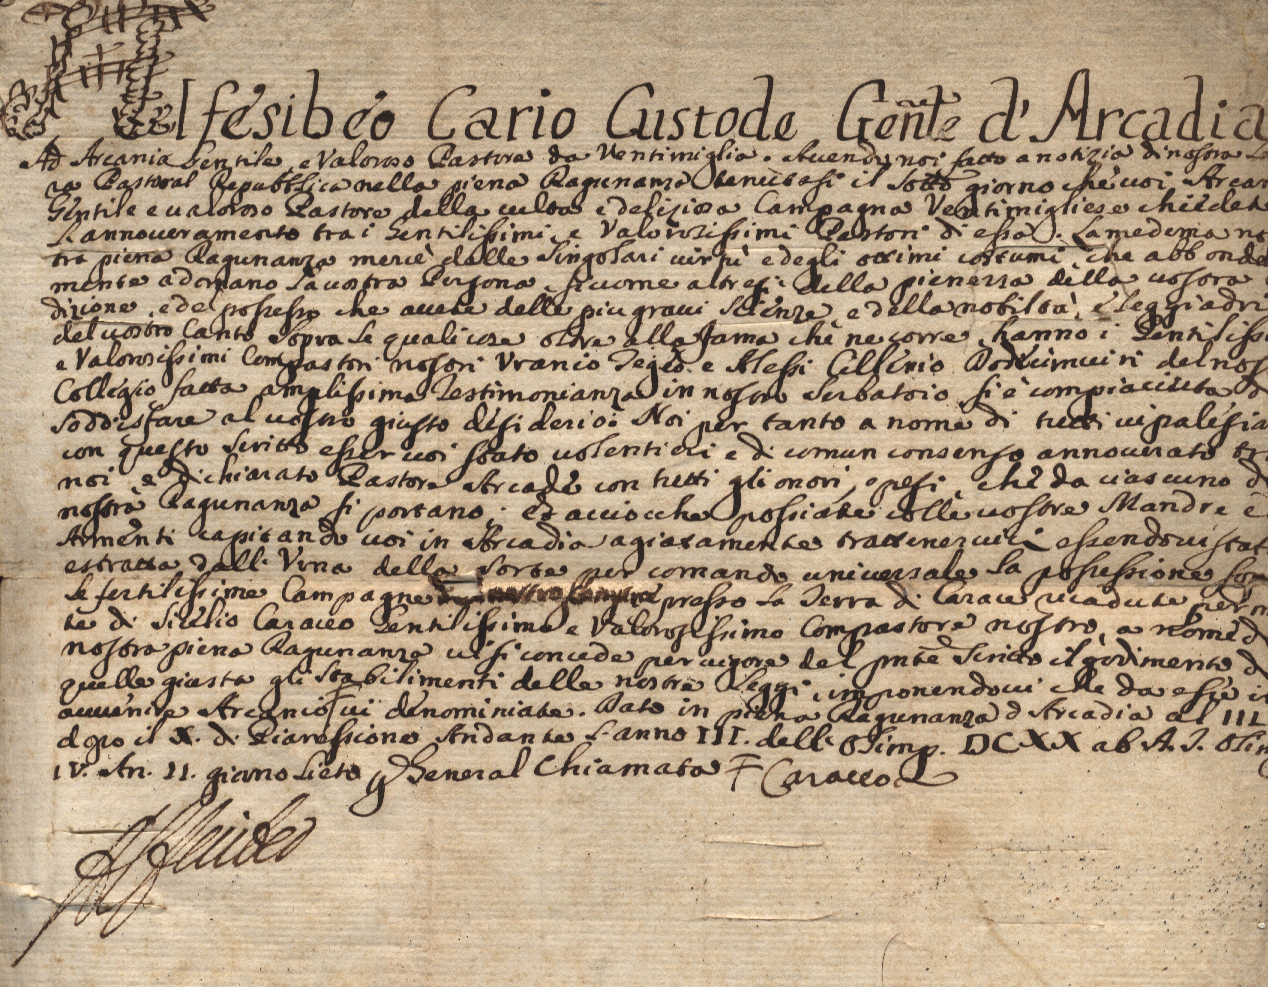 Alfesibeo Cario Custode Gen̄le d'Arcadia
Ad Arcania Gentile, e Valoroso Pastore da Ventimiglia. Avendo noi fatto a notizia di nostra
ra Pastoral Repubblica nella piena Ragunanza tenutasi il sotto giorno che voi Arcan
Gentile e valoroso Pastore della culta e deliziosa Campagna Ventimigliese chiedete
l'annoveramento tra i Gentilissimi, e Valorosissimi Pastori di essa. La medema no
tra piena Ragunanza mercè delle singolari virtù e degli ottimi costumi, che abbonde
mente adornano la vostra Persona, siccome altresì della pienezza della vostra
dizione, e del possesso che avete delle più gravi scienze, e della nobiltà, e leggiadri
del vostro Canto sopra le quali cose oltre alla fama che ne corre, hanno i Gentilissi
e Valorosissimi Compastori nostri Uranio Tegeo, e Alessi Cillenio Dodicimviri del nos
Collegio fatta amplissima Testimonianza in nostro Serbatoio, si è compiaciuta d
soddisfare al vostro giusto desiderio: Noi per tanto a nome di tutti vi palesia
con questo scritto esser voi stato volentieri e di comun consenso annoverato tra
noi, e dichiarato Pastore Arcade con tutti gli onori, e pesi, che da ciascuno d
nostra Ragunanza si portano; ed acciocche possiate colle vostre Mandre e
Armenti capitando voi in Arcadia agiatamente trattenervici essendovi stat
estratta dall'Urna della Sorte per comando universale la possessione so
le fertilissime Campagne presso la Terra di Carace ricadute per m
te di Siralio Caraceo Gentilissimo e Valorosissimo Compastore nostro, a nome d
nostra piena Ragunanza vi si concede per vigore del pnte Scritto il godimento d
quelle giusta gli stabilimenti delle nostre Leggi, imponendovi che da esse in
avvenire Arcanio vi denominiate. Dato in piena Ragunanza d'Arcadia al III
dopo il X. di Piarossione Andante l'anno III. dell'Olimp. DCXX ab A. I. Olimp
IV. An. II. giorno lieto per General Chiamata Caraceo